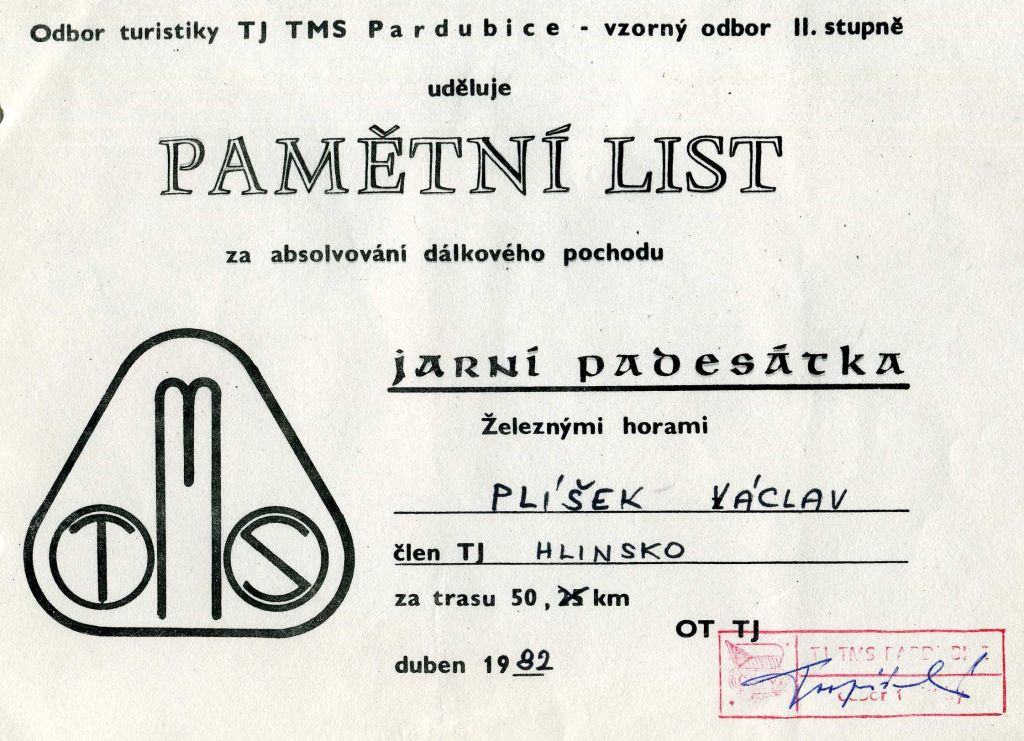 Odbor turistiky TJ TMS Pardubice - vzorný odbor II. stupně
uděluje
PAMĚTNÍ LIST
za absolvování dálkového pochodu
jarní padesátka
Železnými horami
PLÍŠEK VÁCLAV
člen TJ HLINSKO
za trasu 50, 25 km
OT TJ
duben 1982
TMS
TJ TMS PARDUBICE